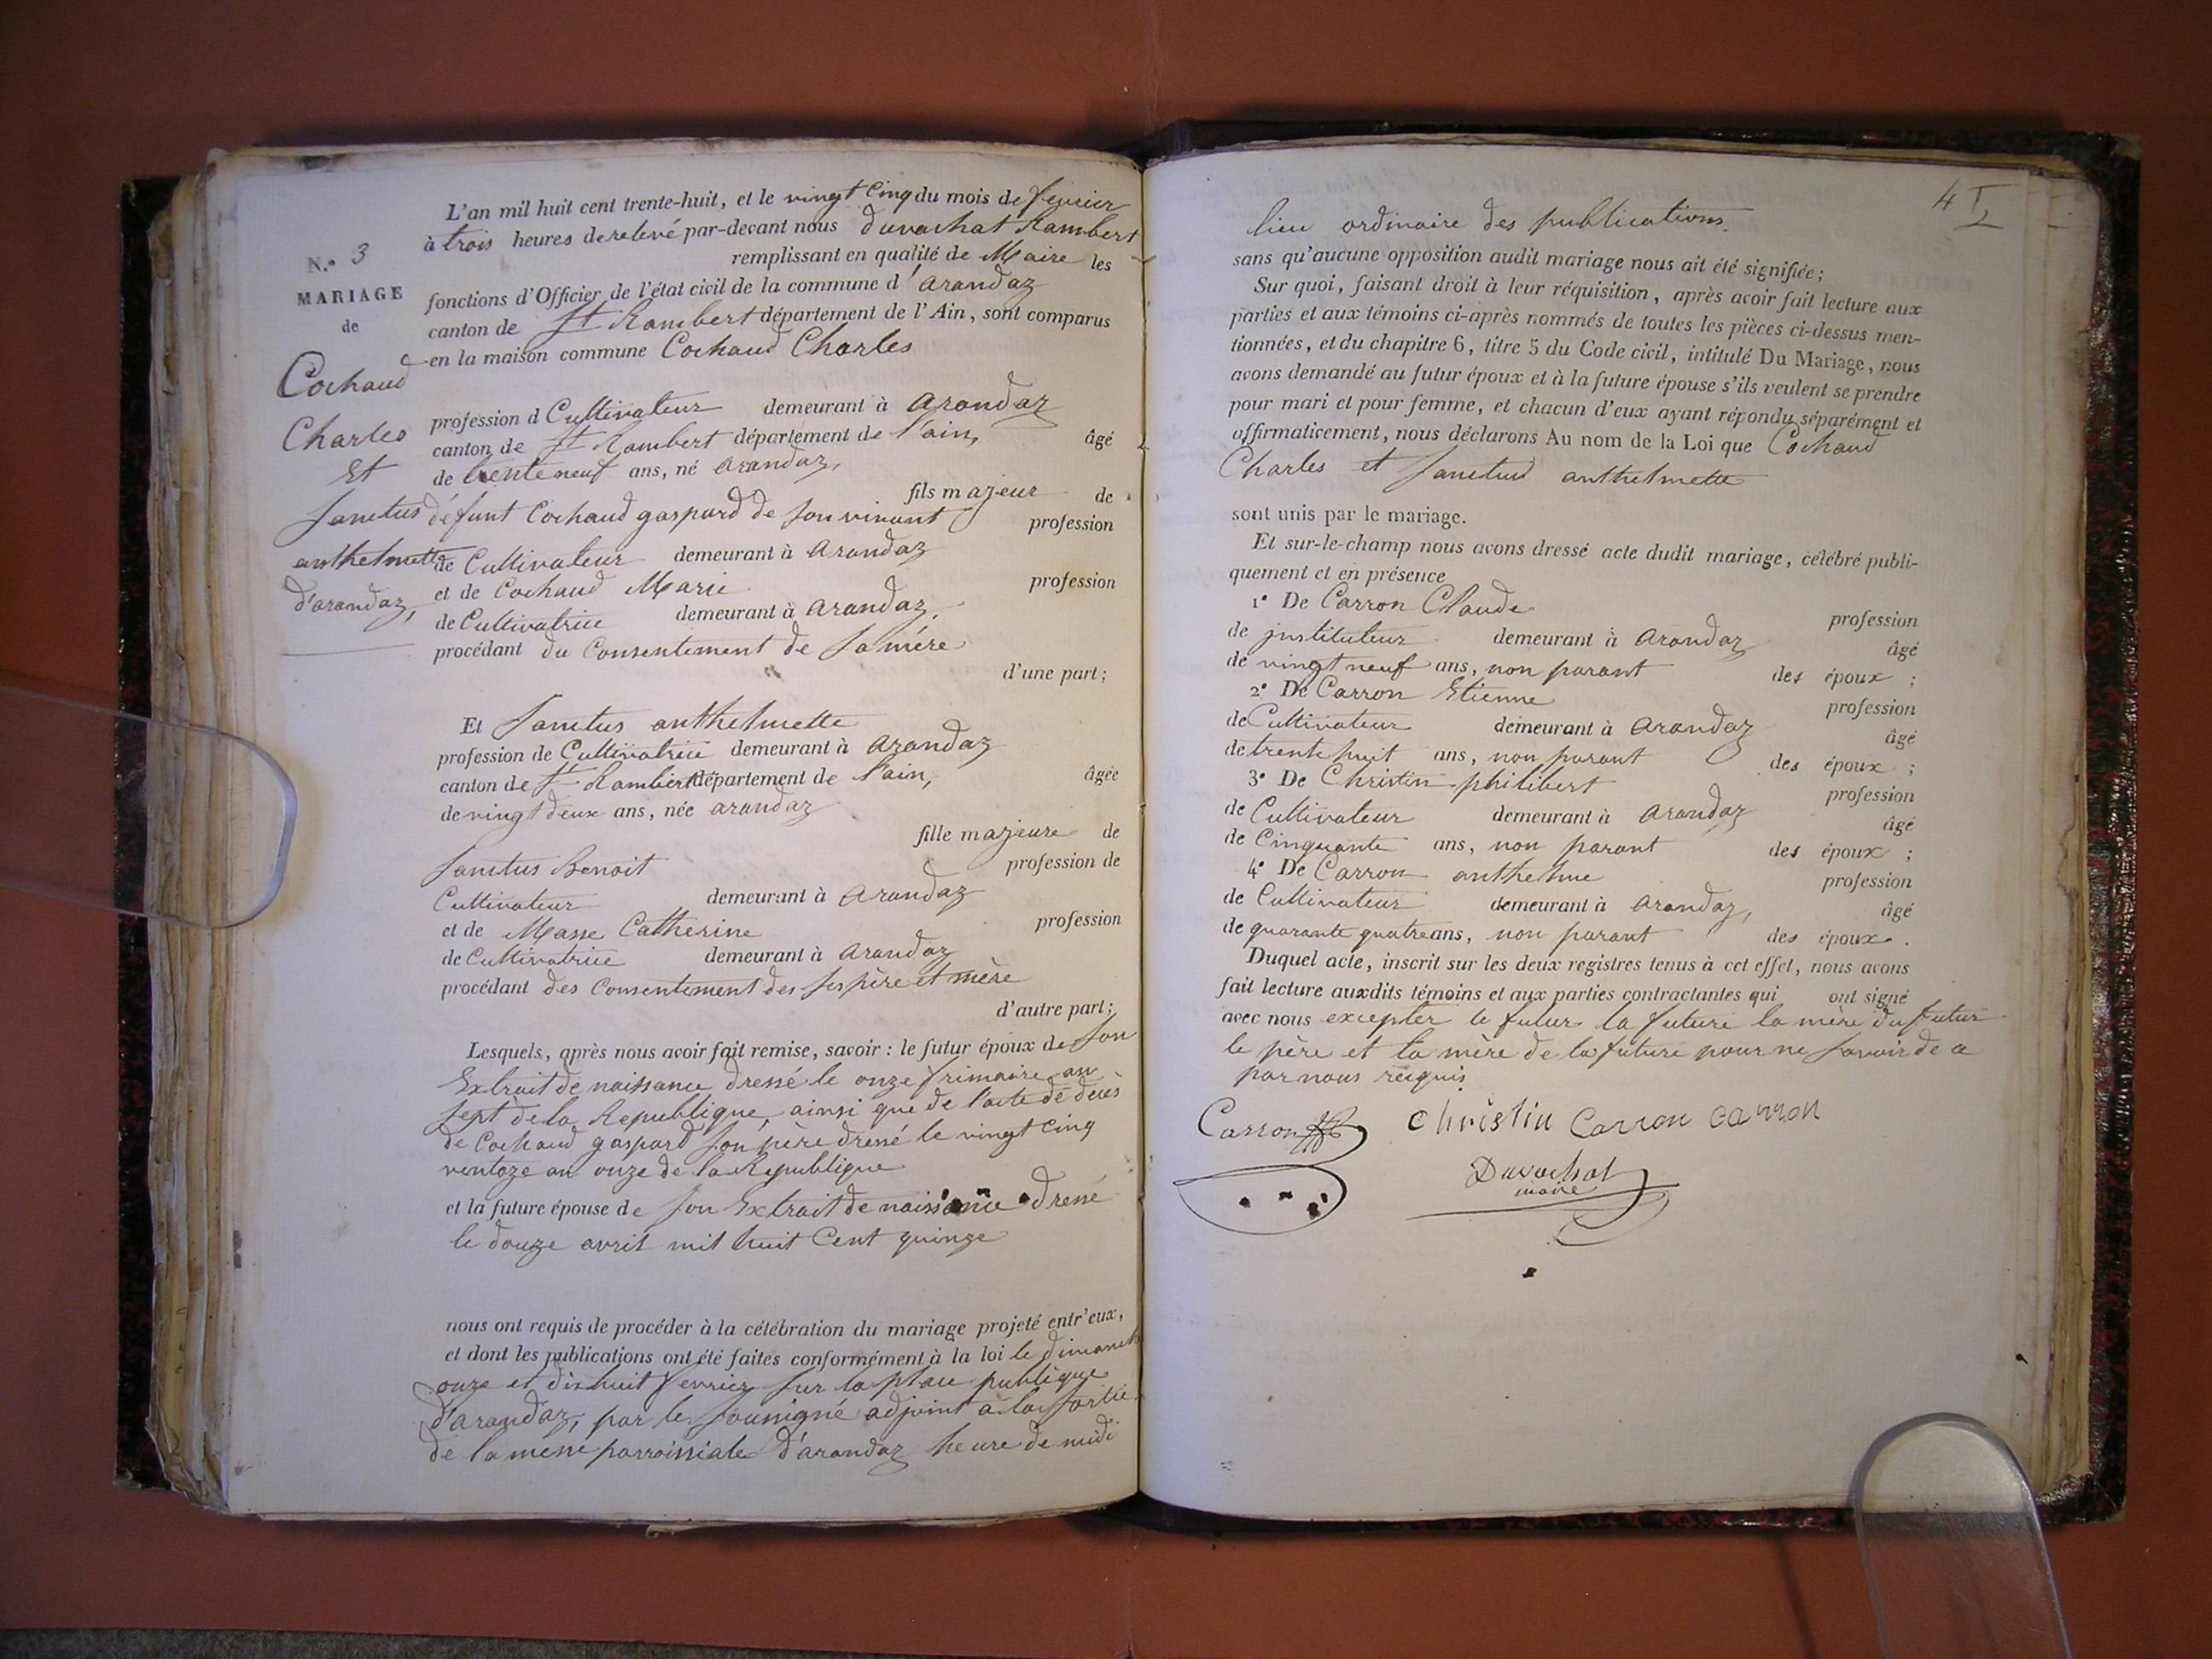 N.o 3
MARIAGE
de
Cochaud
Charles
Et
Sanctus
anthelmette
d'arandaz,
L'an mil huit cent trente-huit, et le vingt Cinq du mois de fevrier
à trois heures de relevé par-devant nous duvachat Rambert
remplissant en qualité de Maire les
fonctions d'Officier de l'état civil de la commune d'arandaz
canton de St Rambert département de l'Ain, sont comparus
en la maison commune Cochaud Charles
profession d Cultivateur demeurant à arandaz
canton de St Rambert département de l'ain, âgé
de trente neuf ans, né arandaz,
fils majeur de
défunt Cochaud gaspard de son vivant profession
de Cultivateur demeurant à arandaz
et de Cochaud Marie profession
de Cultivatrice demeurant à arandaz,
procédant du Consentement de sa mére
d'une part;
Et Sanctus anthelmette
profession de Cultivatrice demeurant à arandaz
canton de St Rambert département de l'ain, âgée
de vingt deux ans, née arandaz
fille majeure de
Sanctus Benoit profession de
Cultivateur demeurant à arandaz
et de Masse Catherine profession
de Cultivatrice demeurant à arandaz
procédant des Consentement des ses père et mère
d'autre part;
Lesquels, après nous avoir fait remise, savoir : le futur époux de son
Extrait de naissance dressé le onze frimaire an
sept de la Republique, ainsi que de l'acte de décès
de Cochaud gaspard son père dressé le vingt Cinq
ventoze an onze de la Republique
et la future épouse de son Extrait de naissance dressé
le douze avril mil huit Cent quinze
nous ont requis de procéder à la célébration du mariage projeté entr'eux,
et dont les publications ont été faites conformément à la loi le dimanche
onze et dixhuit fevrier sur la place publique
d'arandaz, par le soussigné adjoint à la sortie
de la messe parroissiale d'arandaz heure de midi
4
lieu ordinaire des publications.
sans qu'aucune opposition audit mariage nous ait été signifiée;
Sur quoi, faisant droit à leur réquisition, après avoir fait lecture aux
parties et aux témoins ci-après nommés de toutes les pièces ci-dessus men-
tionnées, et du chapitre 6, titre 5 du Code civil, intitulé Du Mariage, nous
avons demandé au futur époux et à la future épouse s'ils veulent se prendre
pour mari et pour femme, et chacun d'eux ayant répondu séparément et
affirmativement, nous déclarons Au nom de la Loi que Cochaud
Charles et Sanctus anthelmette
sont unis par le mariage.
Et sur-le-champ nous avons dressé acte dudit mariage, célébré publi-
quement et en présence
1° De Carron Claude profession
de justituteur demeurant à arandaz âgé
de vingt neuf ans, non parant des époux ;
2° De Carron Etienne profession
de Cultivateur demeurant à arandaz âgé
de trente huit ans, non parant des époux ;
3° De Christin philibert profession
de Cultivateur demeurant à arandaz âgé
de Cinquante ans, non parant des époux ;
4° De Carron anthelme profession
de Cultivateur demeurant à arandaz, âgé
de quarante quatre ans, non parant des époux.
Duquel acte, inscrit sur les deux registres tenus à cet effet, nous avons
fait lecture auxdits témoins et aux parties contractantes qui ont signé
avec nous excepter le futur la future la mère du futur
le père et la mère de la future pour ne savoir de ce
par nous réquis.
Carron Christin Carron Carron
Duvachat
maire